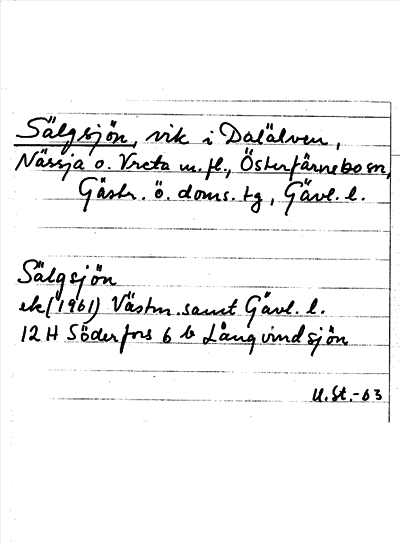 Sälgsjön, vik i Dalälven,
Nässja o. Vreta m.fl., Österfärnebo sn,
Gästr. ö. doms. tg, Gävl. l.
Sälgsjön
ek (1961) Västm. samt Gävl. l.
12 H Söderfors 6 b Långvindsjön
U.St.-63